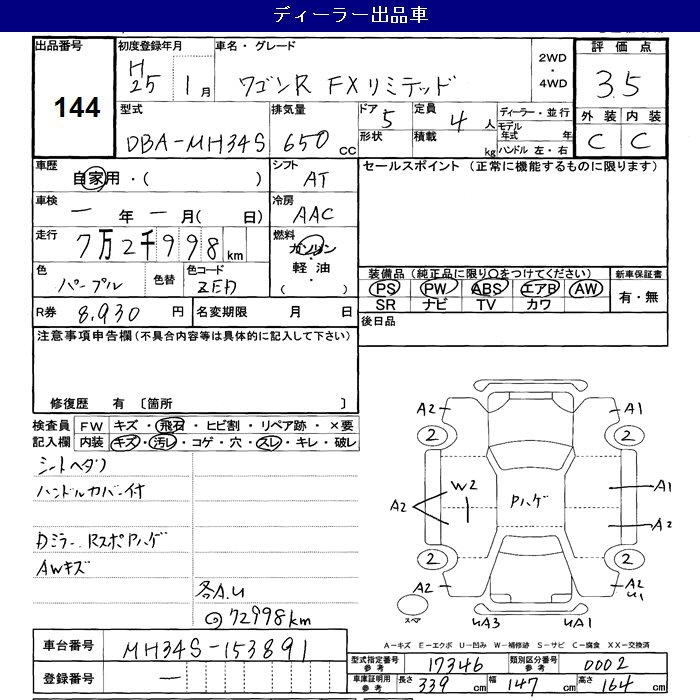 ディーラー出品車
出品番号 初度登録年月 車名・グレード 2WD・4WD 評価点
144 H25 1月 ワゴンR FXリミテッド 3.5
型式 排気量 ドア 5 定員 4人 ディーラー・並行 外装 内装
DBA-MH34S 650cc 形状 積載 kg モデル年式 年 C C
ハンドル 左・右
車歴 自家用・( ) シフト AT セールスポイント (正常に機能するものに限ります)
車検 ー年ー月( 日) 冷房 AAC
走行 7万2千998km 燃料 ガソリン・軽油・( )
色 パープル 色替 色コード ZED 装備品 (純正品に限り○をつけてください) 新車保証書
PS PW ABS エアB AW 有・無
SR ナビ TV カワ
R券 8,930円 名変期限 月 日 後日品
注意事項申告欄 (不具合内容等は具体的に記入して下さい)
修復歴 有 〔箇所 〕
検査員記入欄 FW キズ・飛石・ヒビ割・リペア跡・×要
内装 キズ・汚レ・コゲ・穴・スレ・キレ・破レ
シートヘタリ
ハンドルカバー付
Dミラー、RスポPハゲ
AWキズ
各A.U
◎72998km
A2 A1
2 2
W2 Pハゲ A1
A2 A2
2 2
A2 A2 U1
スペア UA3 UA1
A-キズ E-エクボ U-凹み W-補修跡 S-サビ C-腐食 XX-交換済
車台番号 MH34S-153891 型式指定番号 参考 17346 類別区分番号 参考 0002
登録番号 ー 車庫証明用 参考 長さ 339cm 幅 147cm 高さ 164cm